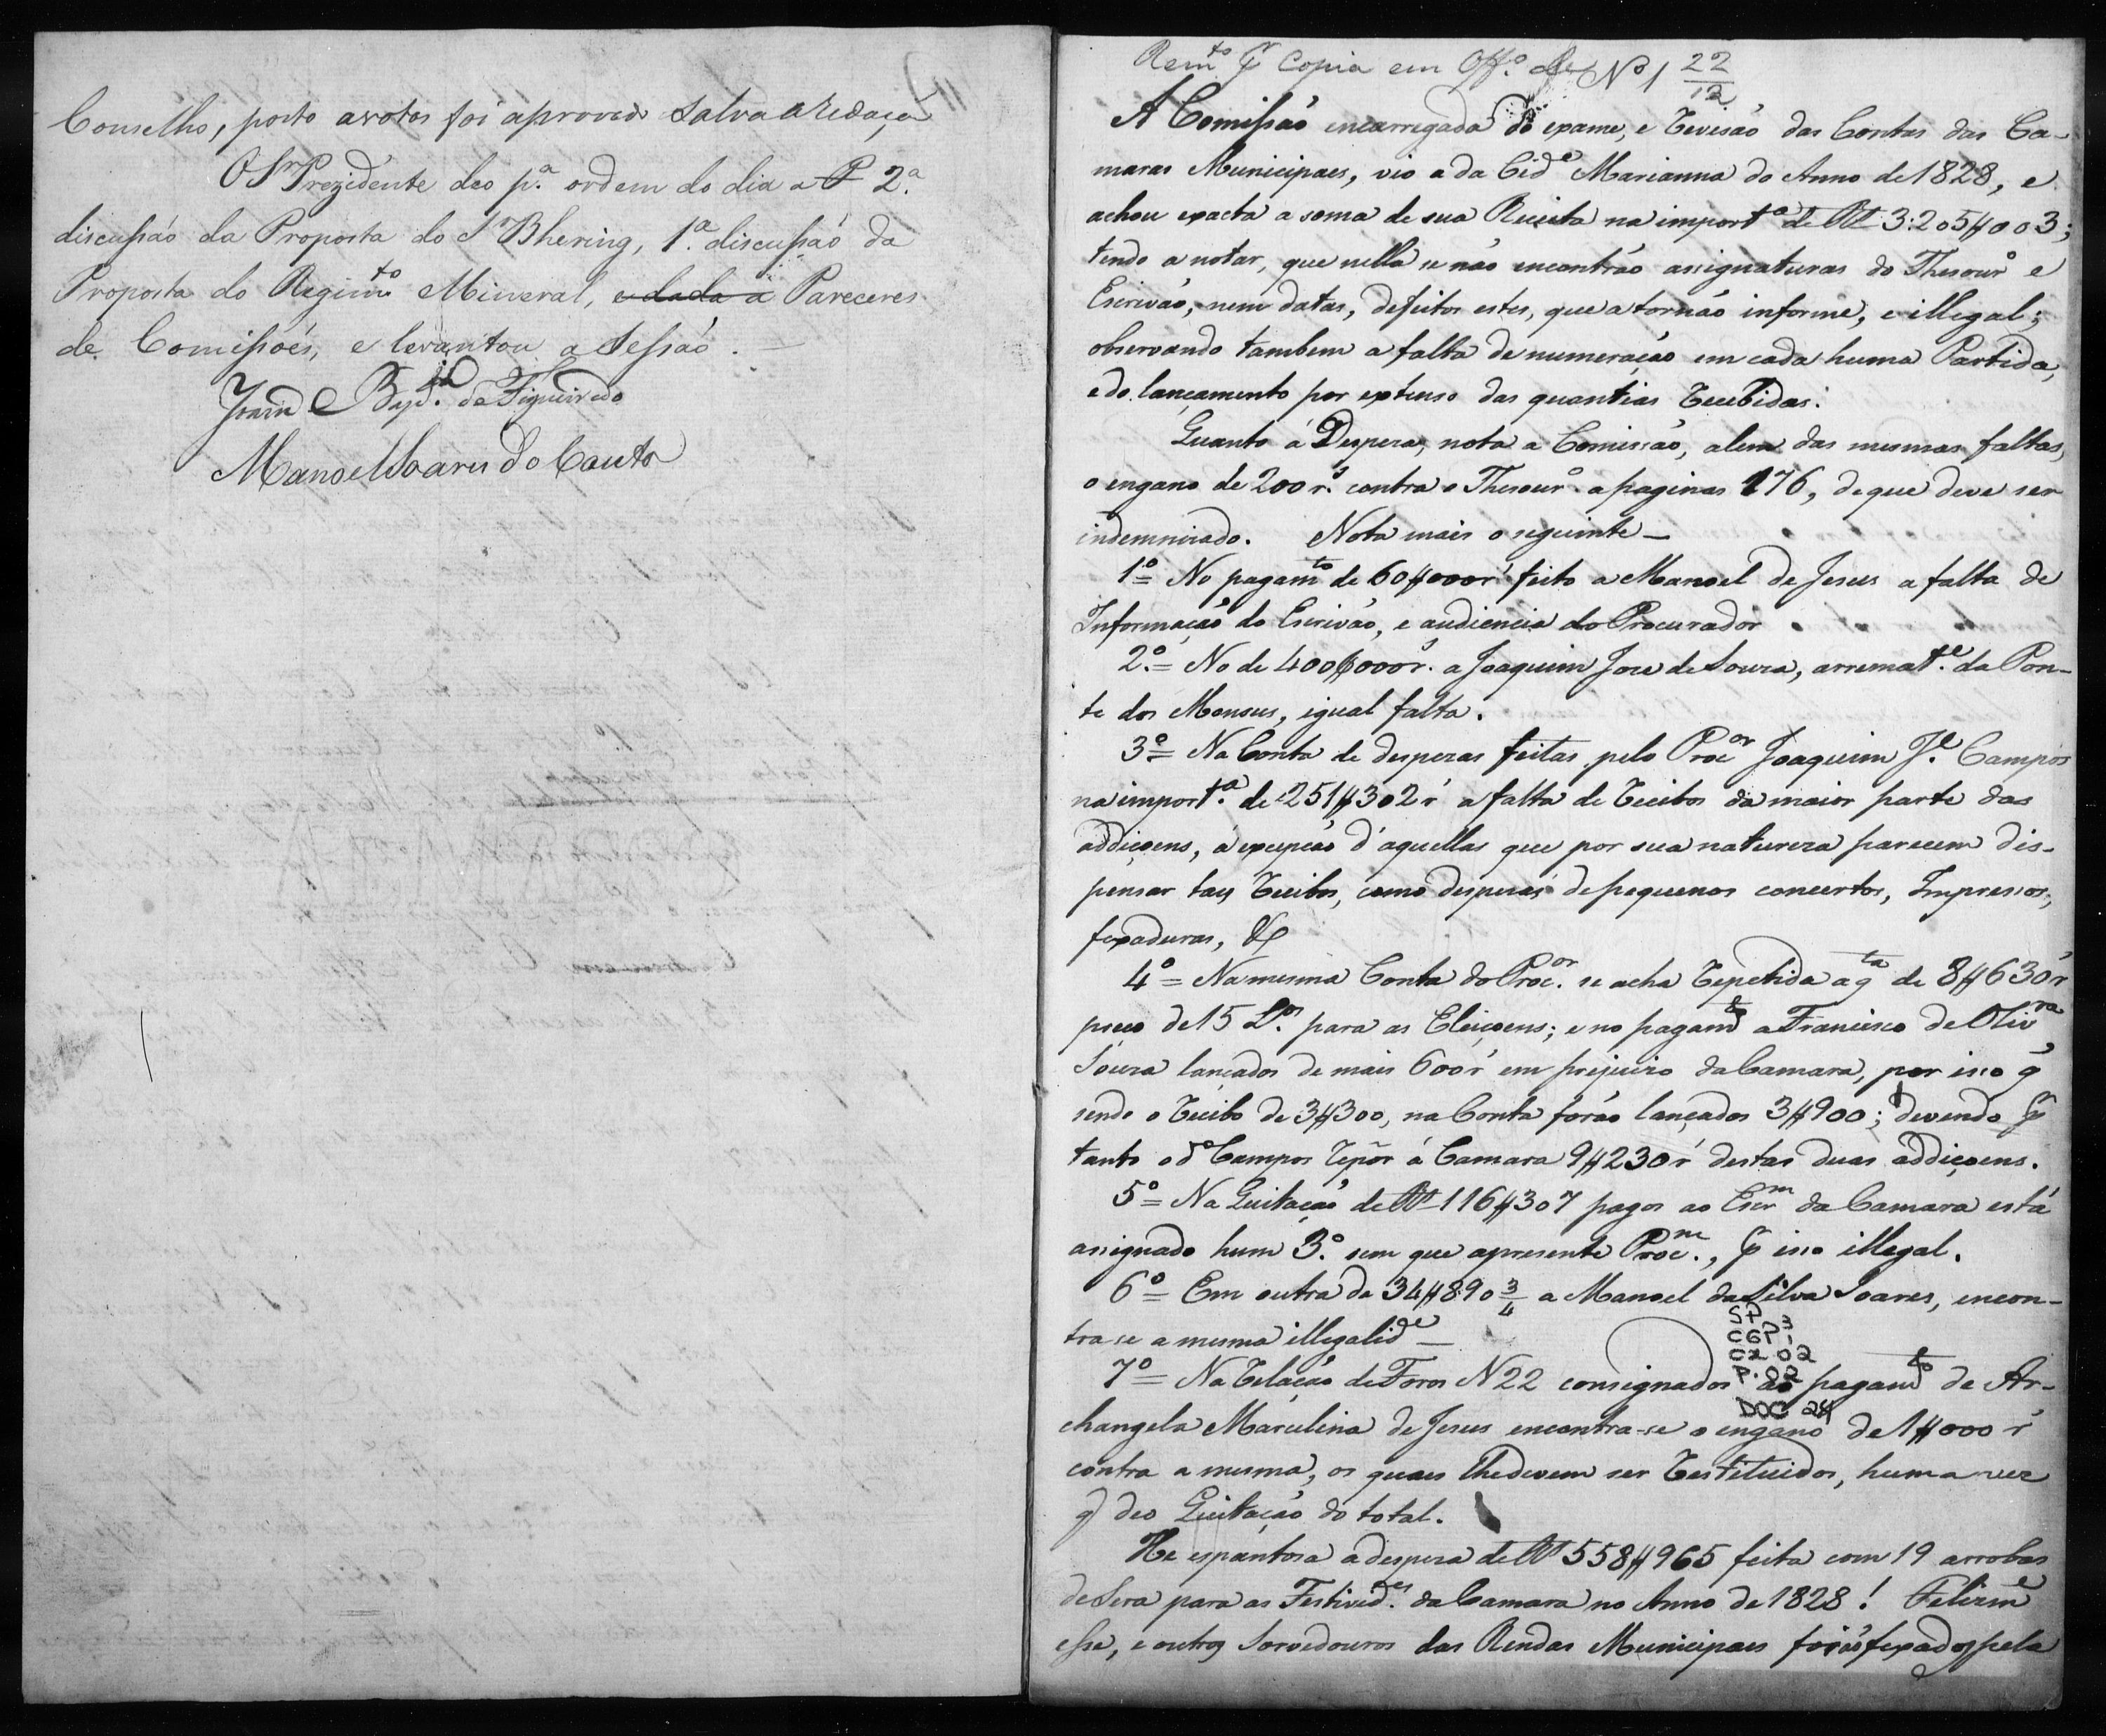 Conselho, posto a votos foi aprovado salva a redação
O Sr. Prezidente deo p.ª ordem do dia a P 2.ª
discussão da Proposta do Sr. Bhering, 1.ª discussão da
Proposta do Regim.to Mineral, e dada a Pareceres
de Comissoẽs, e levantou a Sessão.
Bap.ta de Figueiredo
Manoel Soares do Couto
Rem.to p Copia em Off.º de Nº 1 22/12
A Comissão encarregada do exame, e revisão das Contas das Ca-
maras Municipaes, vio a da Cid.e Marianna do Anno de 1828, e
achou exacta a soma de sua Receita na import.ª de Rs 3:205$003;
tendo a notar, que nella se não encontrão assignaturas do Thesour.º e
Escrivão, nem datas, defeitos estes, que a tornão informe, e illegal;
observando tambem a falta de numeração em cada huma Partida,
e do lançamento por extenso das quantias recebidas.
Quanto á Despeza, nota a Comissão, alem das mesmas faltas,
o engano de 200 r.s contra o Thesour.º a paginas 176, de que deve ser
indemnizado. Nota mais o seguinte –
1º = No pagam.to de 60$000 r.s feito a Manoel de Jesus a falta de
Informação do Escrivão, e audiencia do Procurador.
2.º = No de 400$000 r.s a Joaquim Joze de Souza, arremat.e da Pon-
te dos Monsus, igual falta.
3º = Na Conta de despezas feitas pelo Proc.or Joaquim J.e Campos
na import.ª de 251$302 r.s a falta de recibos da maior parte das
addiçoens, á excepção d'aquellas que por sua natureza parecem dis-
pensar taes recibos, como despezas de pequenos concertos, Impressos,
fexaduras, &
4º = Na mesma Conta do Proc.or se acha repetida a q.ta de 8$630 r.s
preço de 15 L.os para as Eleiçoens; e no pagam.to a Francisco de Oliv.ra
Souza lançados de mais 600 r.s em prejuizo da Camara, por isso q
sendo o recibo de 3$300, na Conta forão lançados 3$900; devendo p
tanto o d.º Campos repôr á Camara 9$230 r.s destas duas addiçoens.
5º = Na Quitação de Rs 116$307 pagos ao Escr.m da Camara está
assignado hum 3.º sem que apresente Proc.m, p isso illegal.
6º = Em outra de 34$890 3/4 a Manoel da Silva Soares, encon-
tra-se a mesma illegalid.e –
S P 3
CGP 1
CX 02
P. 02
DOC 24
7º = Na relação de Foros N 22 consignados ao pagam.to de Ar-
changela Marcelina de Jesus encontra-se o engano de 1$000 r.s
contra a mesma, os quaes lhe devem ser restituidos, huma vez
q deo Quitação do total.
He espantosa a despeza de Rs 558$965 feita com 19 arrobas
de Sera para as Festivid.es da Camara no Anno de 1828! Felizm.e
esse, e outros sorvedouros das Rendas Municipaes forão fexados pela